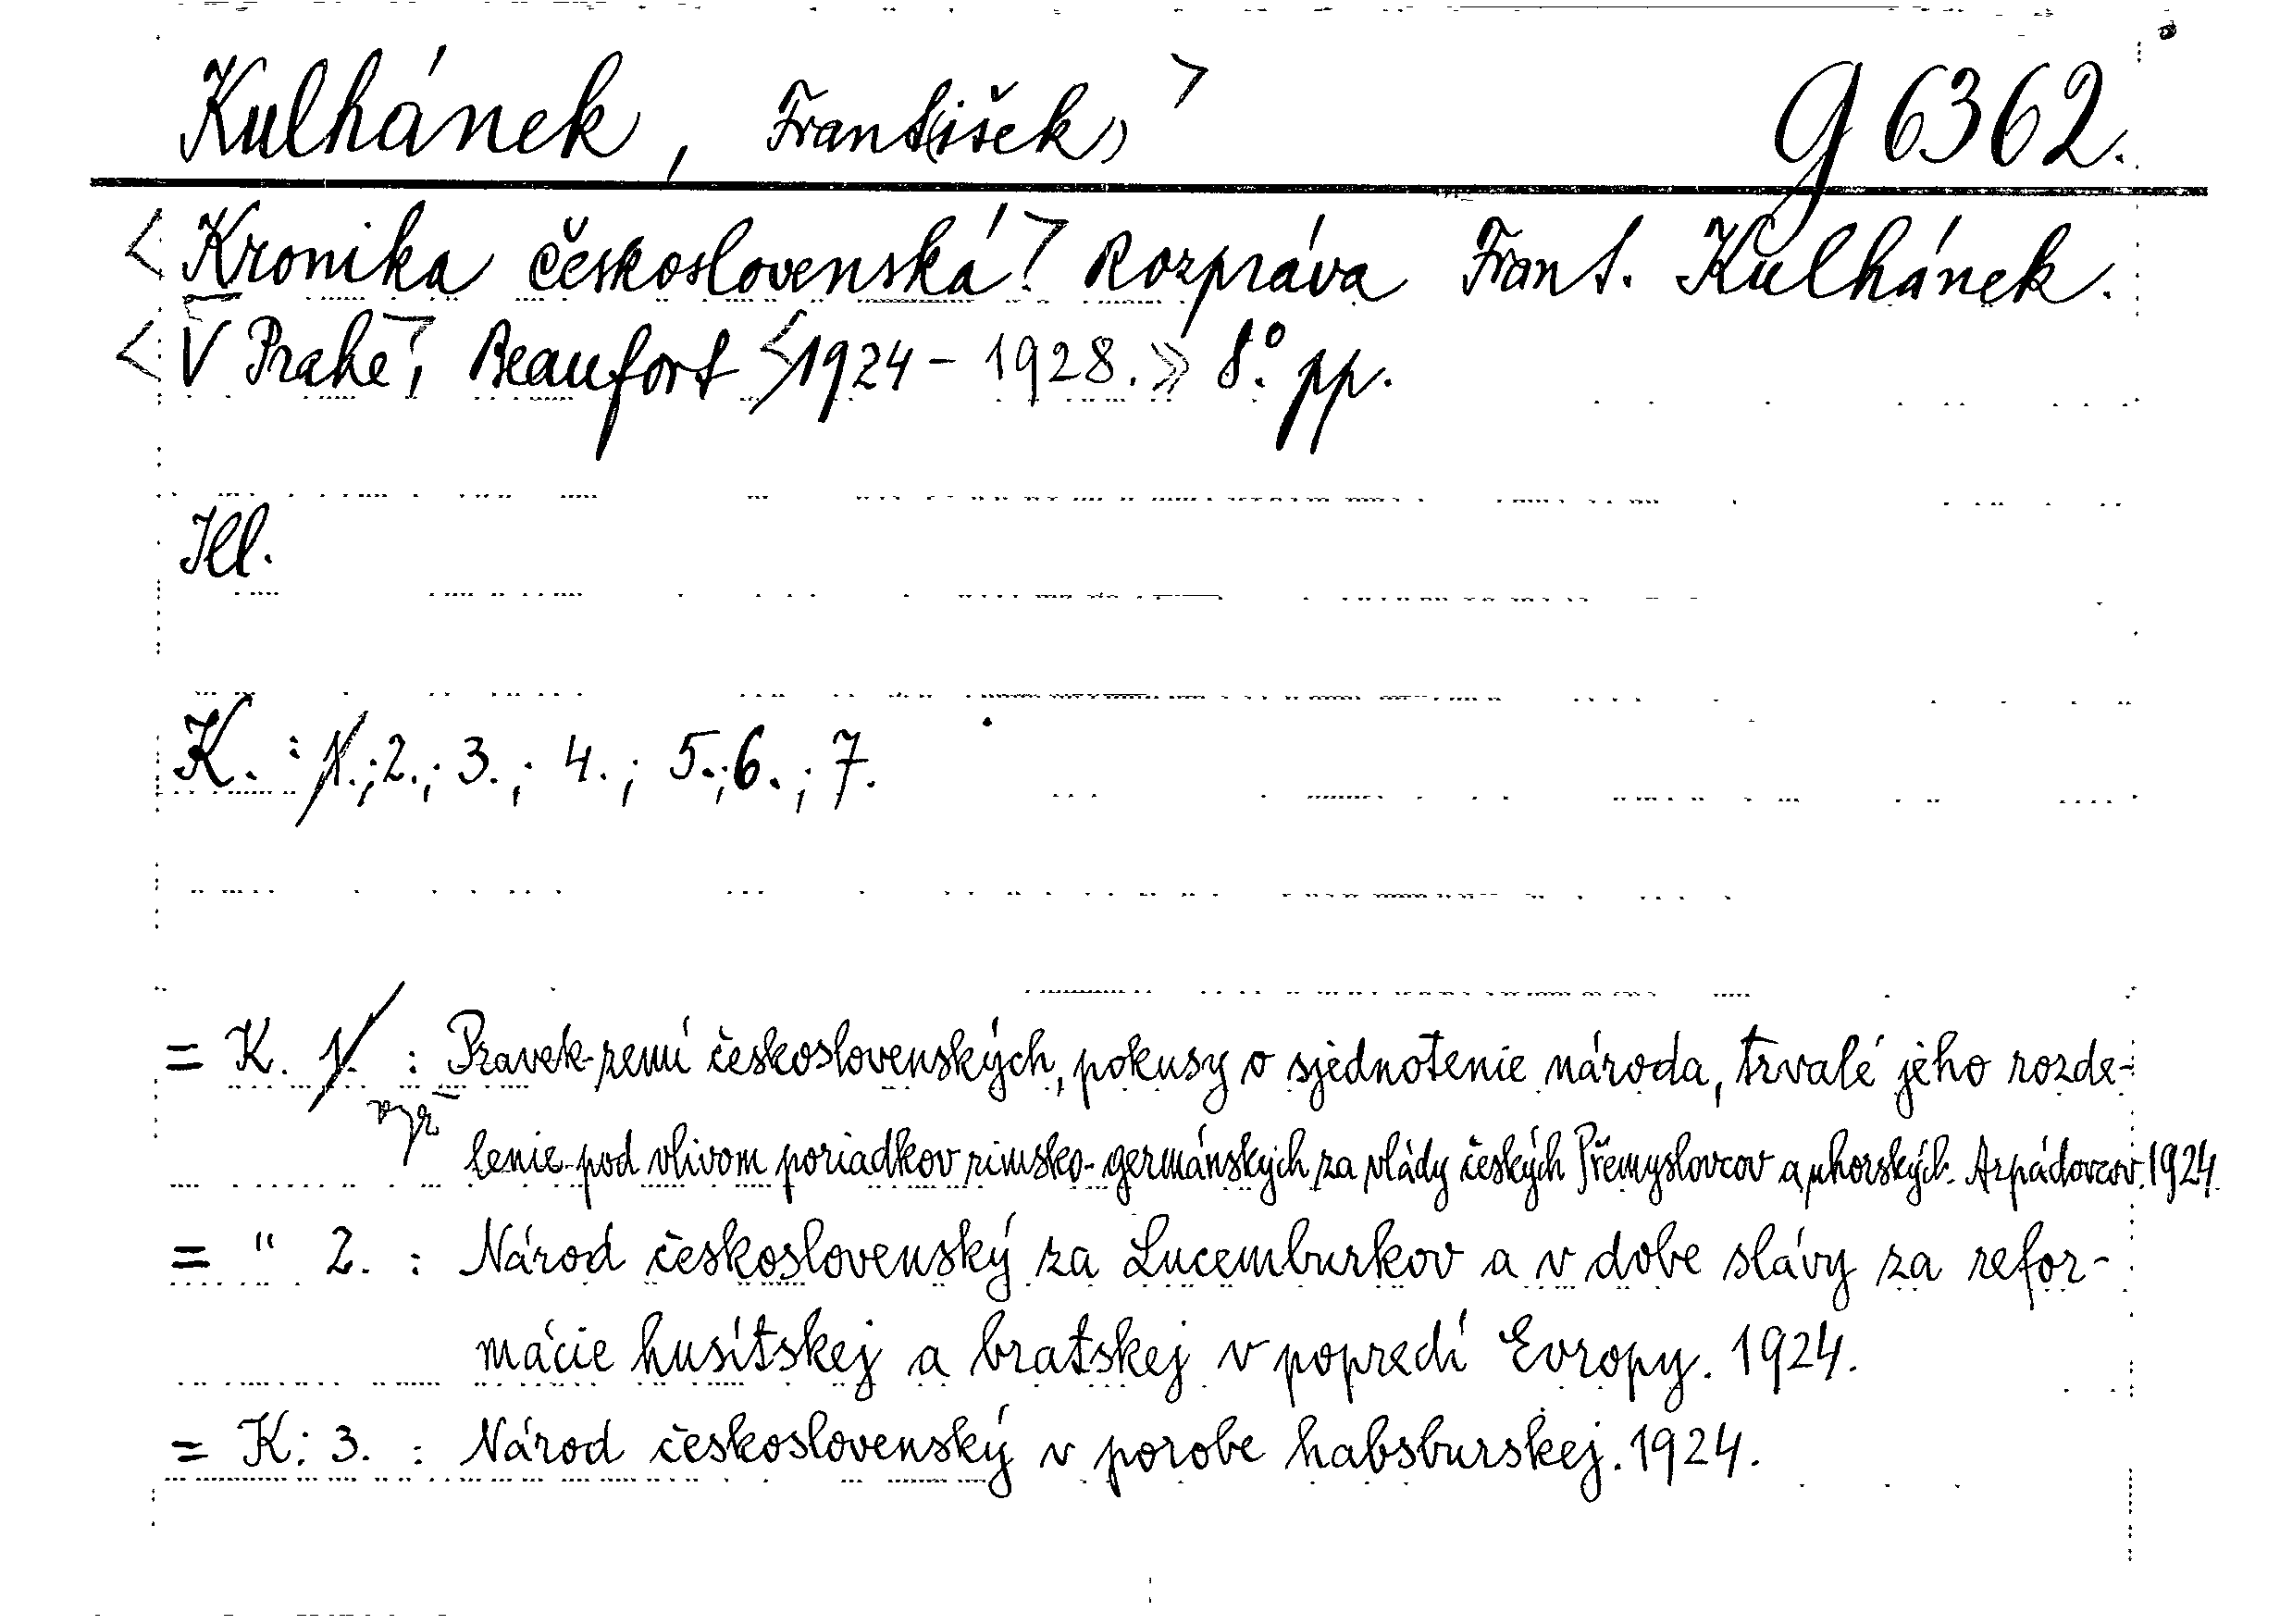 Kulhánek, Frant(išek) > G 6362.
<Kronika československá.> Rozpráva Frant. Kulhánek.
<V Prahe>, Beaufort <1924 - 1928.>> 8.° pp.
Ill.
K. : 1.; 2.; 3.; 4.; 5.; 6.; 7.
= K. 1. : Pravek zemí československých, pokusy o sjednotenie národa, trvalé jeho rozde-
lenie pod vlivom poriadkov rimsko-germánskych za vlády českých Přemyslovcov a uhorských Arpádovcov. 1924.
= " 2. : Národ československý za Lucemburkov a v dobe slávy za refor-
mácie husitskej a bratskej v popredí Evropy. 1924.
= K. 3. : Národ československý v porobe habsburskej. 1924.